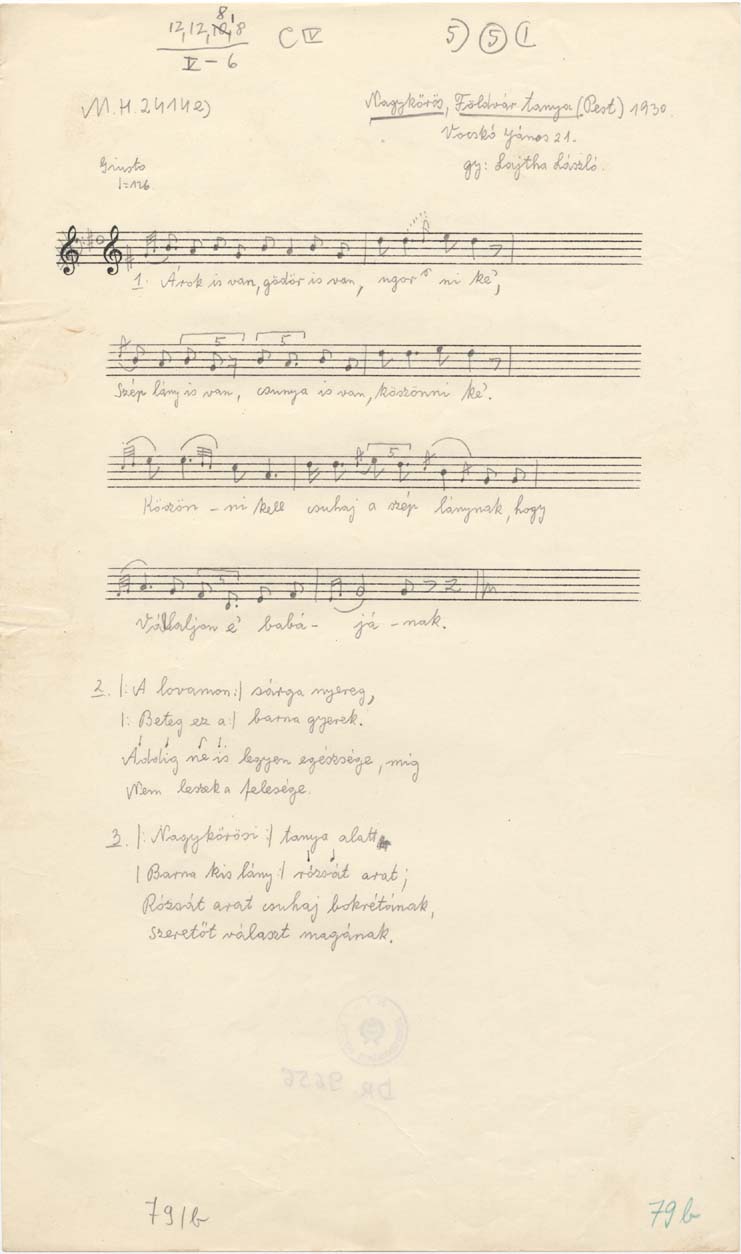 12, 12, 8, 8
V – 6
C IV
5) 5 1
M.H. 2414 e)
Nagykőrös, Földvár tanya (Pest) 1930.
Vocskó János 21.
gy: Lajtha László.
Giusto
♩=126
1. Árok is van, gödör is van, ugorni ké',
5 5
Szép lány is van, csunya is van, köszönni ké'.
5
Köszön – ni kell csuhaj a szép lánynak, hogy
5
Vállaljon é' babá – já – nak.
2. |: A lovamon :| sárga nyereg,
|: Beteg ez a :| barna gyerek.
Addig ne is legyen egészsége, míg
Nem leszek a felesége.
3. |: Nagykőrösi :| tanya alatt
| Barna kis lány :| rózsát arat;
Rózsát arat csuhaj bokrétának,
Szeretőt választ magának.
DR 9656
79/b
79 b